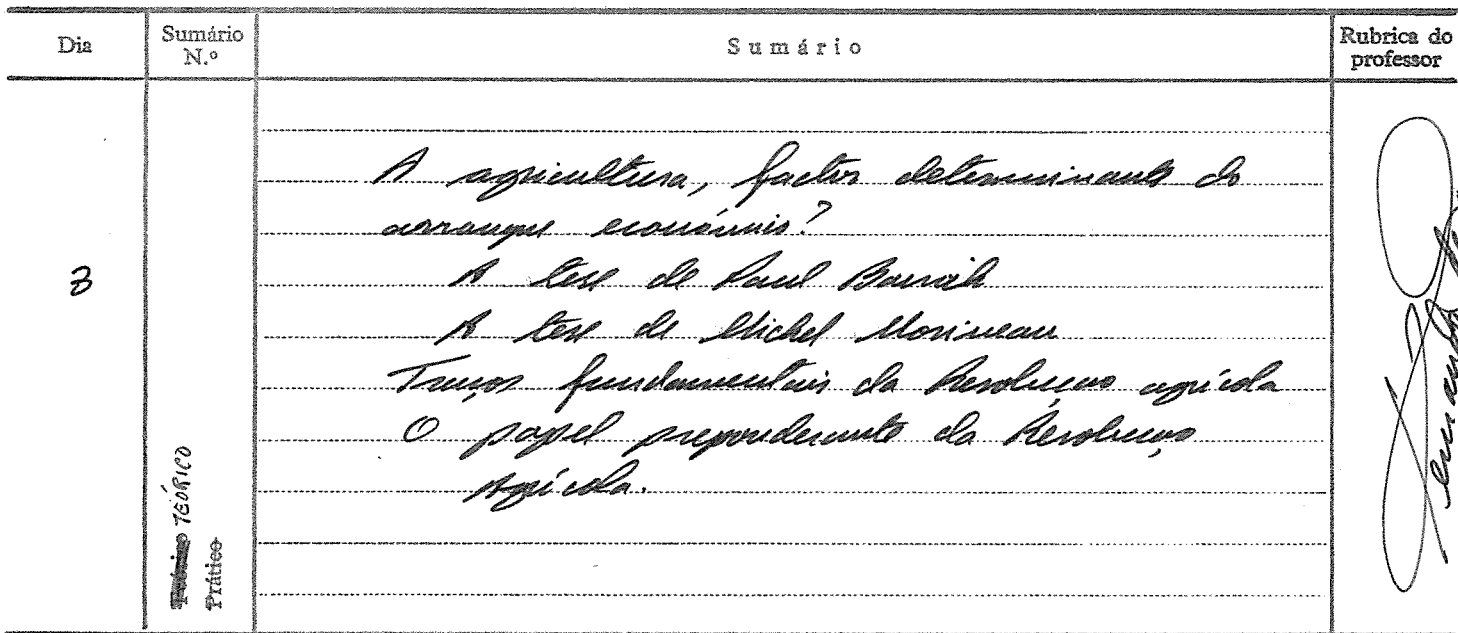 Dia
Sumário N.º
Sumário
Rubrica do professor
3
Teórico TEÓRICO
Prático
A agricultura, factor determinante do
arranque económico?
A tese de Paul Bairoch
A tese de Michel Morineau
Traços fundamentais da Revolução agrícola
O papel preponderante da Revolução
Agrícola.